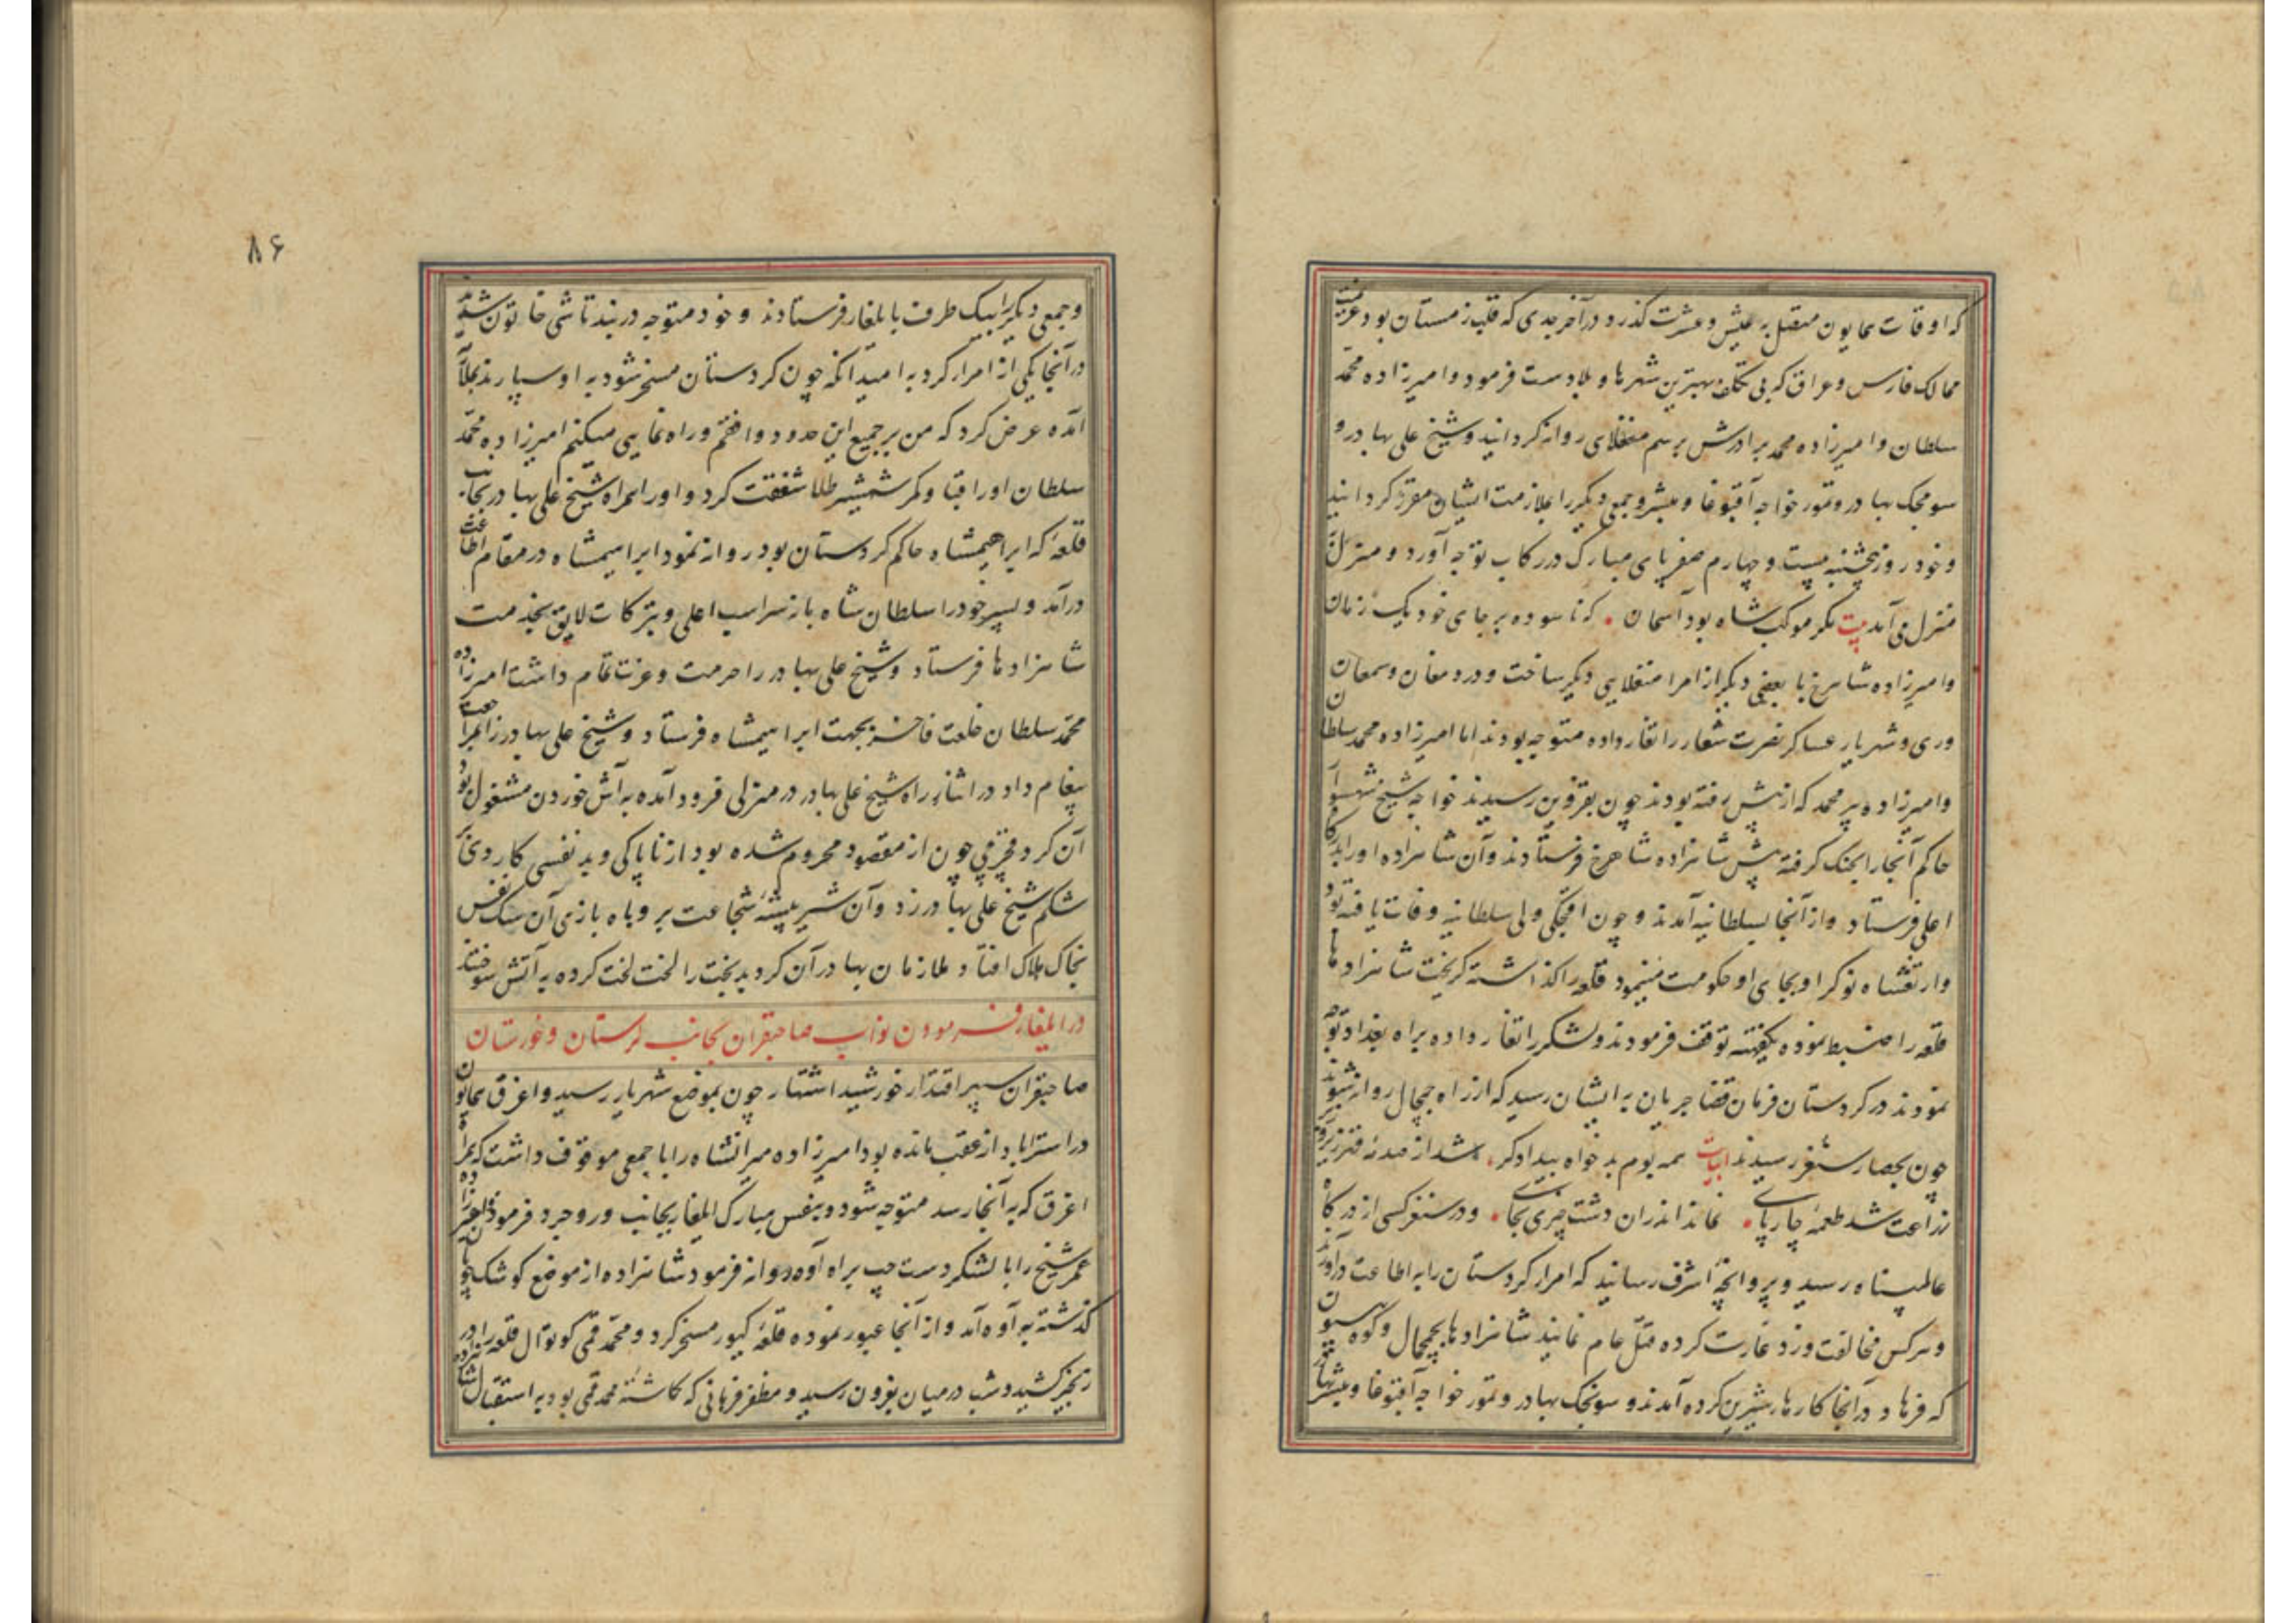 که اوقات همایون متصل به عیش و عشرت گذرد در آخر جدی که قلب زمستان بود عزیمت
ممالک فارس و عراق که بی تکلف بهترین شهرها و بلادست فرمود و امیرزاده محمد
سلطان و امیرزاده محمد برادرش برسم منغلای روانه گردانید و شیخ علی بهادر و
سونجک بهادر و تمور خواجه آقبوغا و مبشر و جمعی دیگر را بملازمت ایشان مقرر گردانید
و خود روز پنجشنبه بیست و چهارم صفر پای مبارک در رکاب توجه آورد و منزل
منزل می آمد بیت مگر موکب شاه بود آسمان که ناسوده بر جای خود یک زمان
و امیرزاده شاهرخ با بعضی دیگر از امرا منغلایی دیگر ساخت و در دمغان و سمغان
و ری و شهریار عساکر نصرت شعار را تغار داده متوجه بودند اما امیرزاده محمد سلطان
و امیرزاده پیر محمد که از پیش رفته بودند چون بقزوین رسیدند خواجه شیخ شهسوار
حاکم آنجا را بجنگ گرفته پیش شاهزاده شاهرخ فرستادند و آن شاهزاده او را بدرگاه
اعلی فرستاد و از آنجا بسلطانیه آمدند و چون اقچکی ولی سلطانیه وفات یافته بود
و ارتقشاه نوکر او بجای او حکومت مینمود قلعه را گذاشته گریخت شاهزادها
قلعه را ضبط نموده یکهفته توقف فرمودند و لشکر را تغار داده براه بغداد توجه
نمودند در کردستان فرمان قضا جریان به ایشان رسید که از راه چمچال روانه شوند
چون بحصار سنقر رسیدند ابیات همه بوم بدخواه بیدادگر شد از صدمه قهر زیر و زبر
زراعت شد طعمه چارپای نماند اندران دشت چیزی بجای و در سنقر کسی از درگاه
عالمپناه رسید و پروانچه اشرف رسانید که امرار کردستان را به اطاعت درآورند
و هرکس مخالفت ورزد غارت کرده قتل عام نمایند شاهزادها بچمچال و کوه بیستون
که فرهاد در آنجا کارهار شیرین کرده آمدند و سونجک بهادر و تمور خواجه آقبوغا و مبشر بهادر
۸۶
و جمعی دیگر را بیک طرف بایلغار فرستادند و خود متوجه دربند تاشی خاتون شدند
در آنجا یکی از امرار کرد به امید انکه چون کردستان مسخر شود به او سپارند بملازمت
آمده عرض کرد که من بر جمیع این حدود واقفم و راه نمایی میکنم امیرزاده محمد
سلطان او را قبا و کمر شمشیر طلا شفقت کرد و او را همراه شیخ علی بهادر بجانب
قلعه که ابراهیمشاه حاکم کردستان بود روانه نمود ابراهیمشاه در مقام اطاعت
درآمد و پسر خود را سلطان شاه با نه سر اسب اعلی و تبرکات لایق بخدمت
شاهزادها فرستاد و شیخ علی بهادر را حرمت و عزت تمام داشت امیرزاده
محمد سلطان خلعت فاخره بجهت ابراهیمشاه فرستاد و شیخ علی بهادر را مراجعت
پیغام داد در اثنار راه شیخ علی بهادر در منزلی فرود آمده به آش خوردن مشغول بود
آن کرد چون از مقصود محروم شده بود از ناپاکی و بد نفسی کاردی بر
شکم شیخ علی بهادر زد و آن شیر بیشه شجاعت بروباه بازی آن سگ نفس
بخاک هلاک افتاد و ملازمان بهادر آن کرد بدبخت را لخت لخت کرده به آتش سوختند
در ایلغار فرمودن نواب صاحبقران بجانب لرستان و خوزستان
صاحبقران سپهر اقتدار خورشید اشتهار چون بموضع شهریار رسید و اغرق همایون
در استراباد از عقب مانده بود امیرزاده میرانشاه را با جمعی موقوف داشت که همراه
اغرق که به آنجا رسد متوجه شود و بنفس مبارک ایلغار بجانب وروجرد فرمود امیرزاده
عمر شیخ را با لشکر دست چپ براه آوه روانه فرمود شاهزاده از موضع کوشک
گذشته به آوه آمد و از آنجا عبور نموده قلعه کیور مسخر کرد و محمد قمی کوتوال قلعه را در
زنجیر کشید و شب در میان بزون رسید و مظفر فرهانی که گماشته محمد قمی بود به استقبال شاهزاده